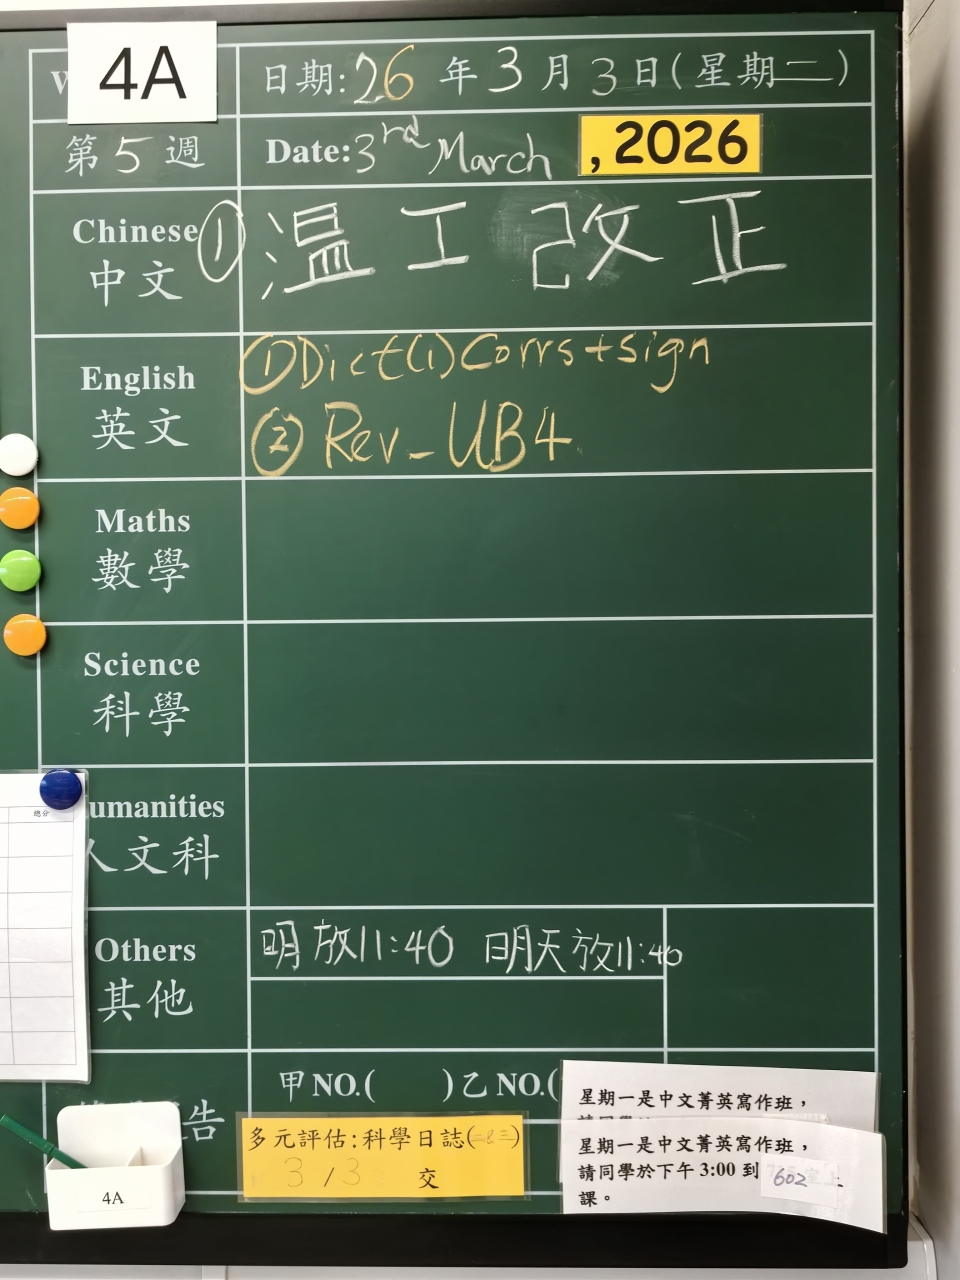 4A
日期:26年3月3日(星期二)
第5週
Date:3rd March ,2026
Chinese
中文
① 温工改正
English
英文
① Dict(1)Corrs+sign
② Rev_UB4
Maths
數學
Science
科學
總分
umanities
人文科
Others
其他
明放11:40 明天放11:40
告
甲NO.( )乙NO.(
多元評估:科學日誌(二&三)
3/3 交
星期一是中文菁英寫作班，
星期一是中文菁英寫作班，
請同學於下午3:00到602室上
課。
4A